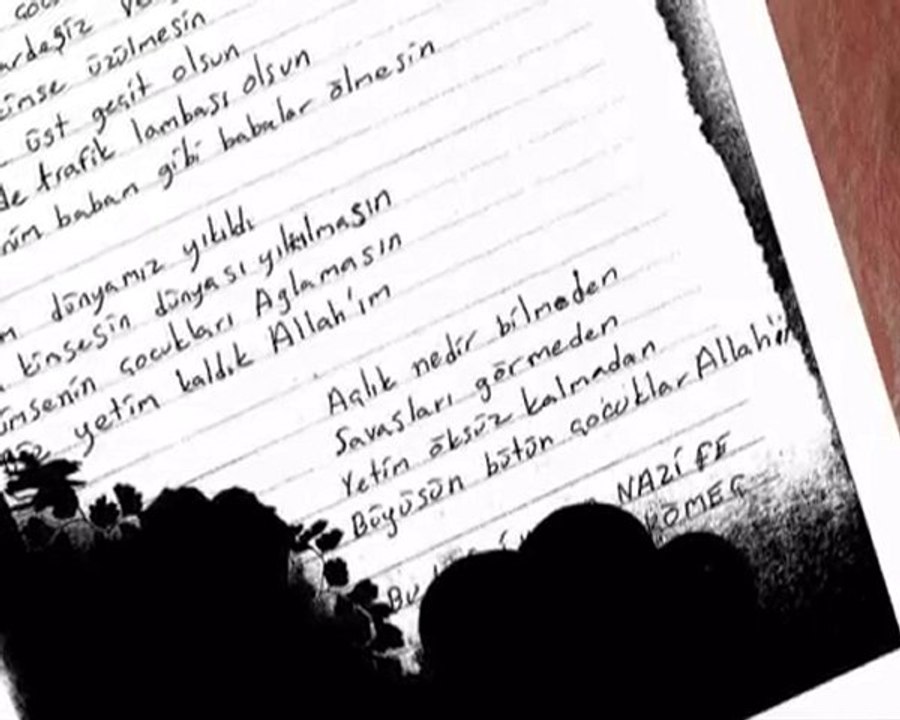 üzülmesin
üst geçit olsun
trafik lambası olsun
babam gibi babalar ölmesin
dünyamız yıkıldı
kinsesin dünyası yıkılmasın
çocukları Ağlamasın
yetim kaldık Allah'ım
Açlık nedir bilmeden
Savaşları görmeden
Yetim öksüz kalmadan
Büyüsün bütün çocuklar Allah'ım
NAZİFE
KÖMEÇ